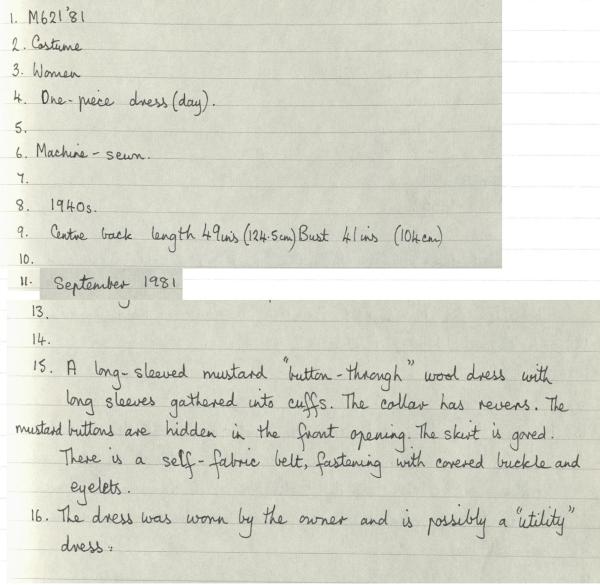 1. M621'81
2. Costume
3. Women
4. One-piece dress (day).
5.
6. Machine-sewn.
7.
8. 1940s.
9. Centre back length 49ins (124.5cm) Bust 41ins (104cm)
10.
11. September 1981
13.
14.
15. A long-sleeved mustard "button-through" wool dress with
long sleeves gathered into cuffs. The collar has revers. The
mustard buttons are hidden in the front opening. The skirt is gored.
There is a self-fabric belt, fastening with covered buckle and
eyelets.
16. The dress was worn by the owner and is possibly a "utility"
dress.